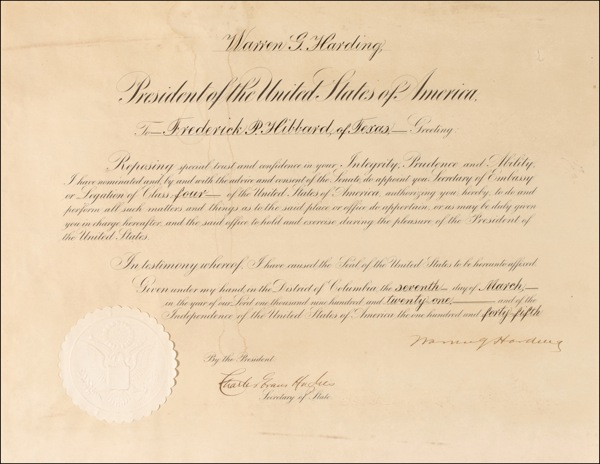 Warren G. Harding,
President of the United States of America.
To Frederick P. Hibbard, of Texas, Greeting
Reposing special trust and confidence in your Integrity, Prudence and Ability,
I have nominated and, by and with the advice and consent of the Senate, do appoint you, Secretary of Embassy
or Legation of Class four of the United States of America, authorizing you, hereby, to do and
perform all such matters and things as to the said place or office do appertain, or as may be duly given
you in charge hereafter, and the said office to hold and exercise during the pleasure of the President of
the United States.
In testimony whereof, I have caused the Seal of the United States to be hereunto affixed.
Given under my hand in the District of Columbia the seventh day of March,
in the year of our Lord one thousand nine hundred and twenty one, and of the
Independence of the United States of America the one hundred and forty-fifth.
Warren G Harding
By the President:
Charles Evans Hughes
Secretary of State.